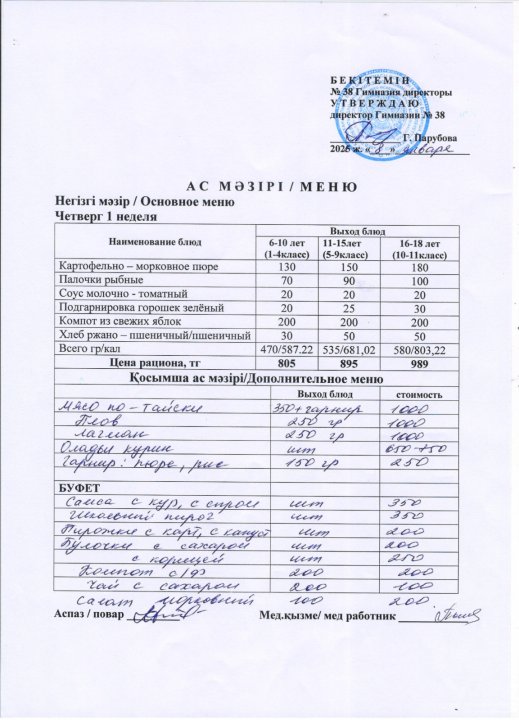 БЕКІТЕМІН
№ 38 Гимназия директоры
УТВЕРЖДАЮ
директор Гимназии № 38
Г. Парубова
2026 ж. « 8 » января
АС МӘЗІРІ / МЕНЮ
Негізгі мәзір / Основное меню
Четверг 1 неделя
Наименование блюд Выход блюд
6-10 лет (1-4класс) 11-15лет (5-9класс) 16-18 лет (10-11класс)
Картофельно – морковное пюре 130 150 180
Палочки рыбные 70 90 100
Соус молочно - томатный 20 20 20
Подгарнировка горошек зелёный 20 25 30
Компот из свежих яблок 200 200 200
Хлеб ржано – пшеничный/пшеничный 30 50 50
Всего гр/кал 470/587.22 535/681,02 580/803,22
Цена рациона, тг 805 895 989
Қосымша ас мәзірі/Дополнительное меню
Выход блюд стоимость
Мясо по-тайски 350+гарнир 1000
Плов 250 гр 1000
Лагман 250 гр 1000
Оладьи курин шт
Гарнир: пюре, рис 150 гр 250
БУФЕТ
Самса с кур, с сыром шт 350
Школьный пирог шт 350
Пирожки с карт, с капуст шт 200
Булочки с сахаром шт 200
с корицей шт 250
Компот с/ф 200 200
Чай с сахаром 200 100
Салат морковный 100 200
Аспаз / повар Мед.қызме/ мед работник